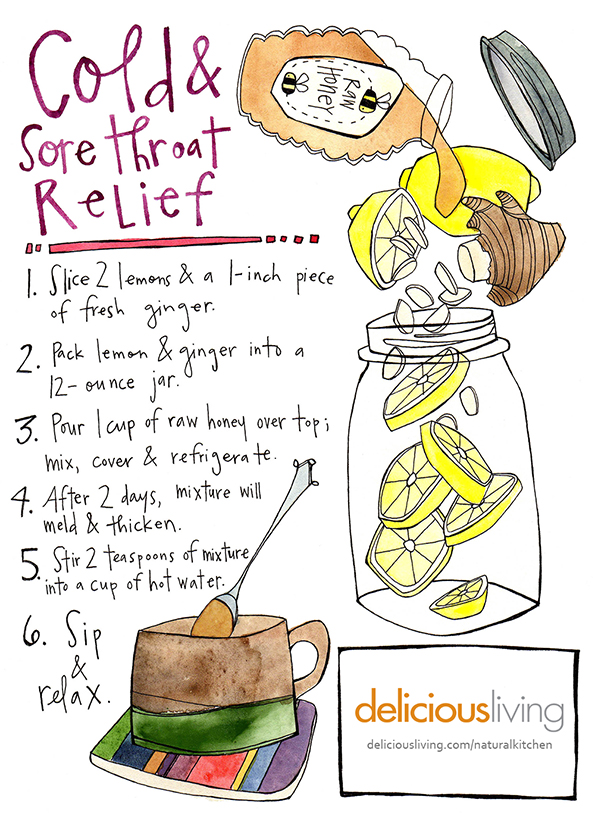 Cold &
Sore throat
Relief
RAW
Honey
1. Slice 2 lemons & a 1-inch piece
of fresh ginger.
2. Pack lemon & ginger into a
12-ounce jar.
3. Pour 1 cup of raw honey over top;
mix, cover & refrigerate.
4. After 2 days, mixture will
meld & thicken.
5. Stir 2 teaspoons of mixture
into a cup of hot water.
6. Sip
&
relax.
deliciousliving
deliciousliving.com/naturalkitchen